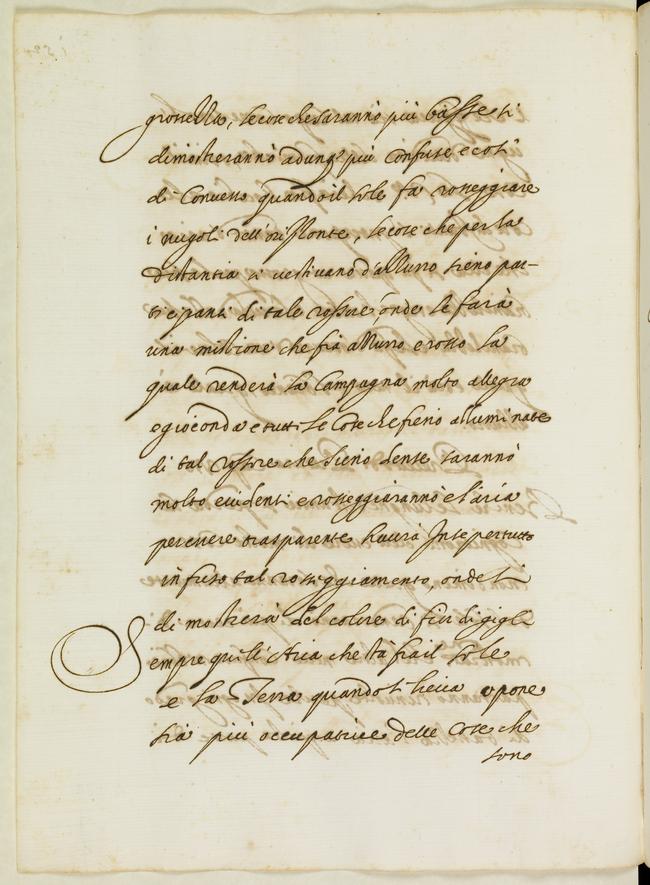 grossella, le cose che saranno più basse si
dimostreranno adunq' più confuse e così
di Converso quando il sole fa rosseggiare
i nugoli dell'orisonte, le cose che per la
distantia si vestivano d'assurro sieno par-
tecipanti di tale rossore, onde se farà
una mistione che fra assurro e rosso la
quale renderà la Campagna molto allegra
e gioconda e tutte le Cose che fieno alluminate
di tal rossore che sieno dense saranno
molto evidenti e rosseggiaranno e l'aria
per essere trasparente haurà In se per tutto
infuso tal rosseggiamento, onde si
di mostrerà del colore di fior di gigli
Sempre quell'Aria che stà fra il sole
e la Terra quando si lieua o pone
sia più occupatrice delle Cose che
sono